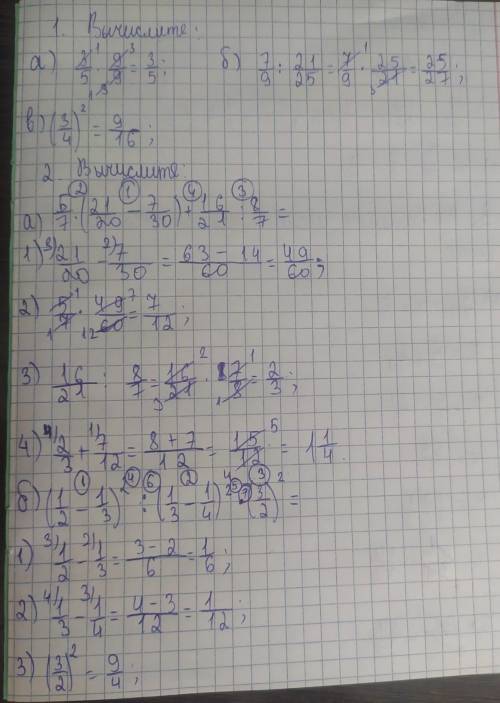 1. Вычислите:
а) 3/5 · 9/9 = 3/5; б) 7/9 : 21/25 = 7/9 · 25/21 = 25/27;
в) (3/4)² = 9/16;
2. Вычислите:
а) 5/7 · (21/20 - 7/30) + 16/21 : 8/7 =
1) 21/20 - 7/30 = (63 - 14)/60 = 49/60;
2) 5/7 · 49/60 = 7/12;
3) 16/21 : 8/7 = 16/21 · 7/8 = 2/3;
4) 2/3 + 7/12 = (8 + 7)/12 = 15/12 = 1 1/4.
б) (1/2 - 1/3)² : (1/3 - 1/4)² · (3/2)² =
1) 1/2 - 1/3 = (3 - 2)/6 = 1/6;
2) 1/3 - 1/4 = (4 - 3)/12 = 1/12;
3) (3/2)² = 9/4;